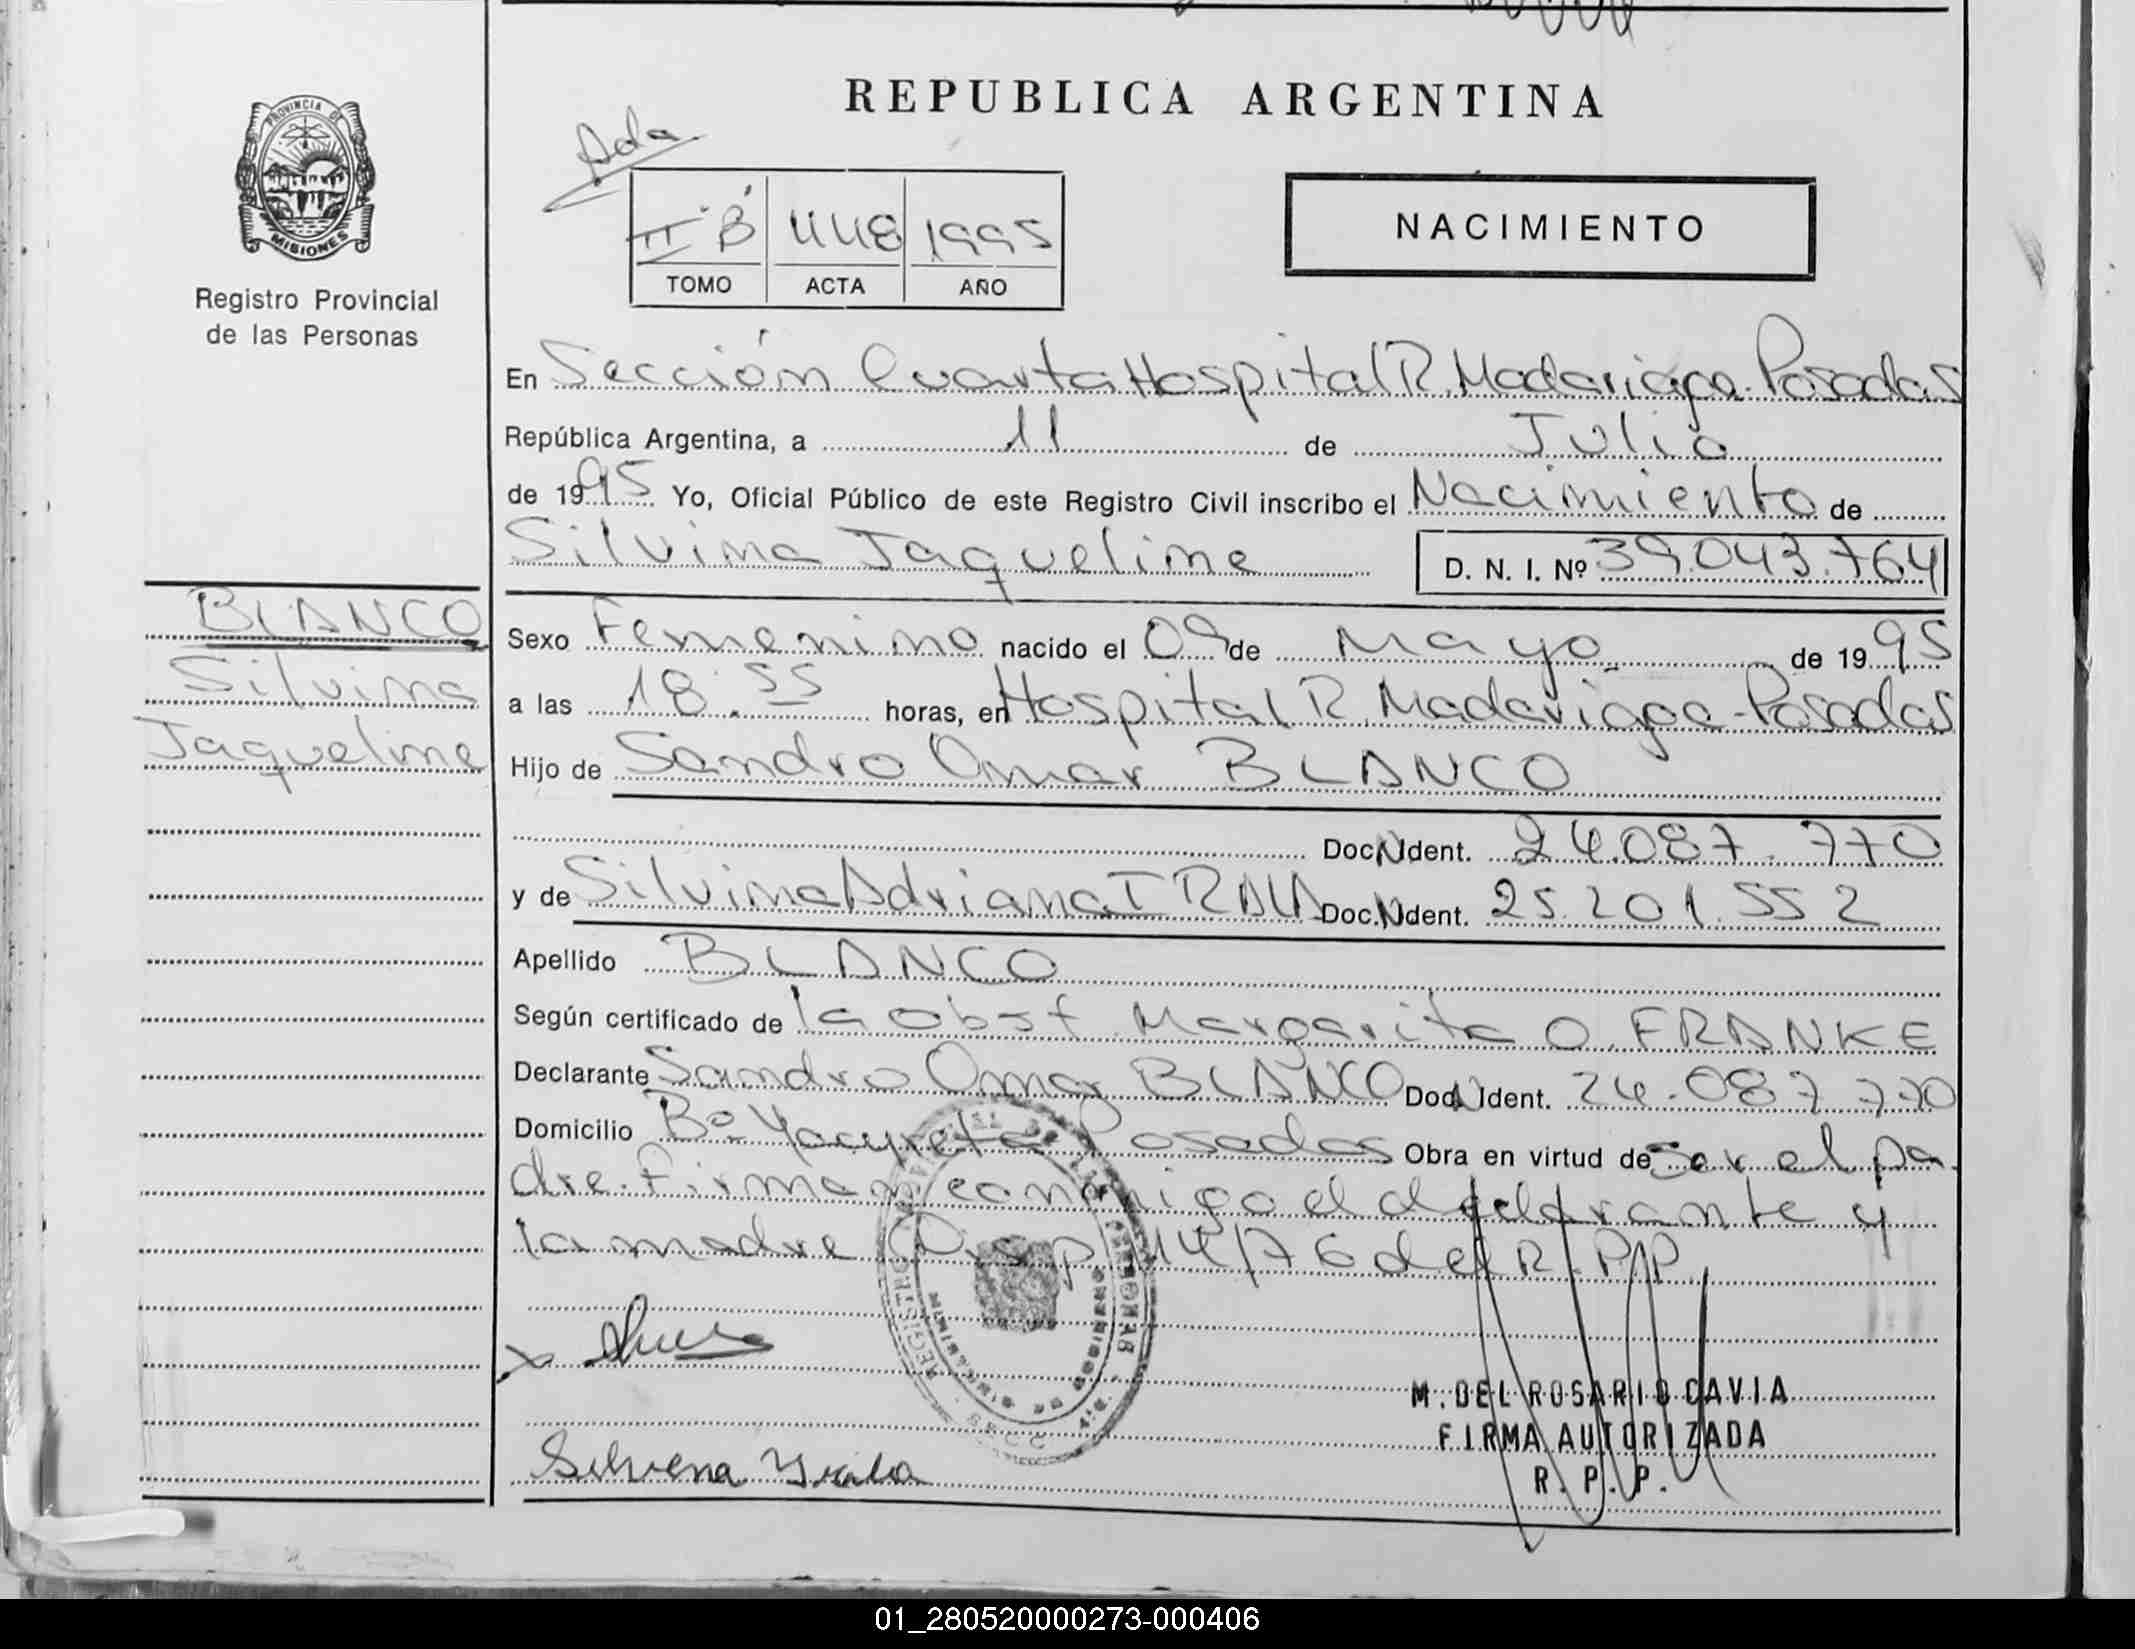 REPUBLICA ARGENTINA
PROVINCIA DE
MISIONES
Registro Provincial
de las Personas
Ada
II B 448 1995
TOMO ACTA AÑO
NACIMIENTO
En Sección Cuarta Hospital R. Madariaga-Posadas
República Argentina, a 11 de Julio
de 1995 Yo, Oficial Público de este Registro Civil inscribo el Nacimiento de
Silvina Jaqueline D. N. I. Nº 39.043.764
BLANCO
Silvina
Jaqueline
Sexo Femenino nacido el 09 de Mayo de 1995
a las 18:55 horas, en Hospital R. Madariaga-Posadas
Hijo de Sandro Omar BLANCO
Doc.N Ident. 24.087.770
y de Silvina Adriana IRALA Doc.N Ident. 25.201.552
Apellido BLANCO
Según certificado de la obst Margarita O. FRANKE
Declarante Sandro Omar BLANCO Doc.N Ident. 24.087.770
Domicilio Bº Yacyreta Posadas Obra en virtud de ser el pa
dre. Firman conmigo el declarante y
la madre Disp 14/76 del R.P.P.
M. DEL ROSARIO CAVIA
FIRMA AUTORIZADA
R. P. P.
Silvina Irala
01_280520000273-000406